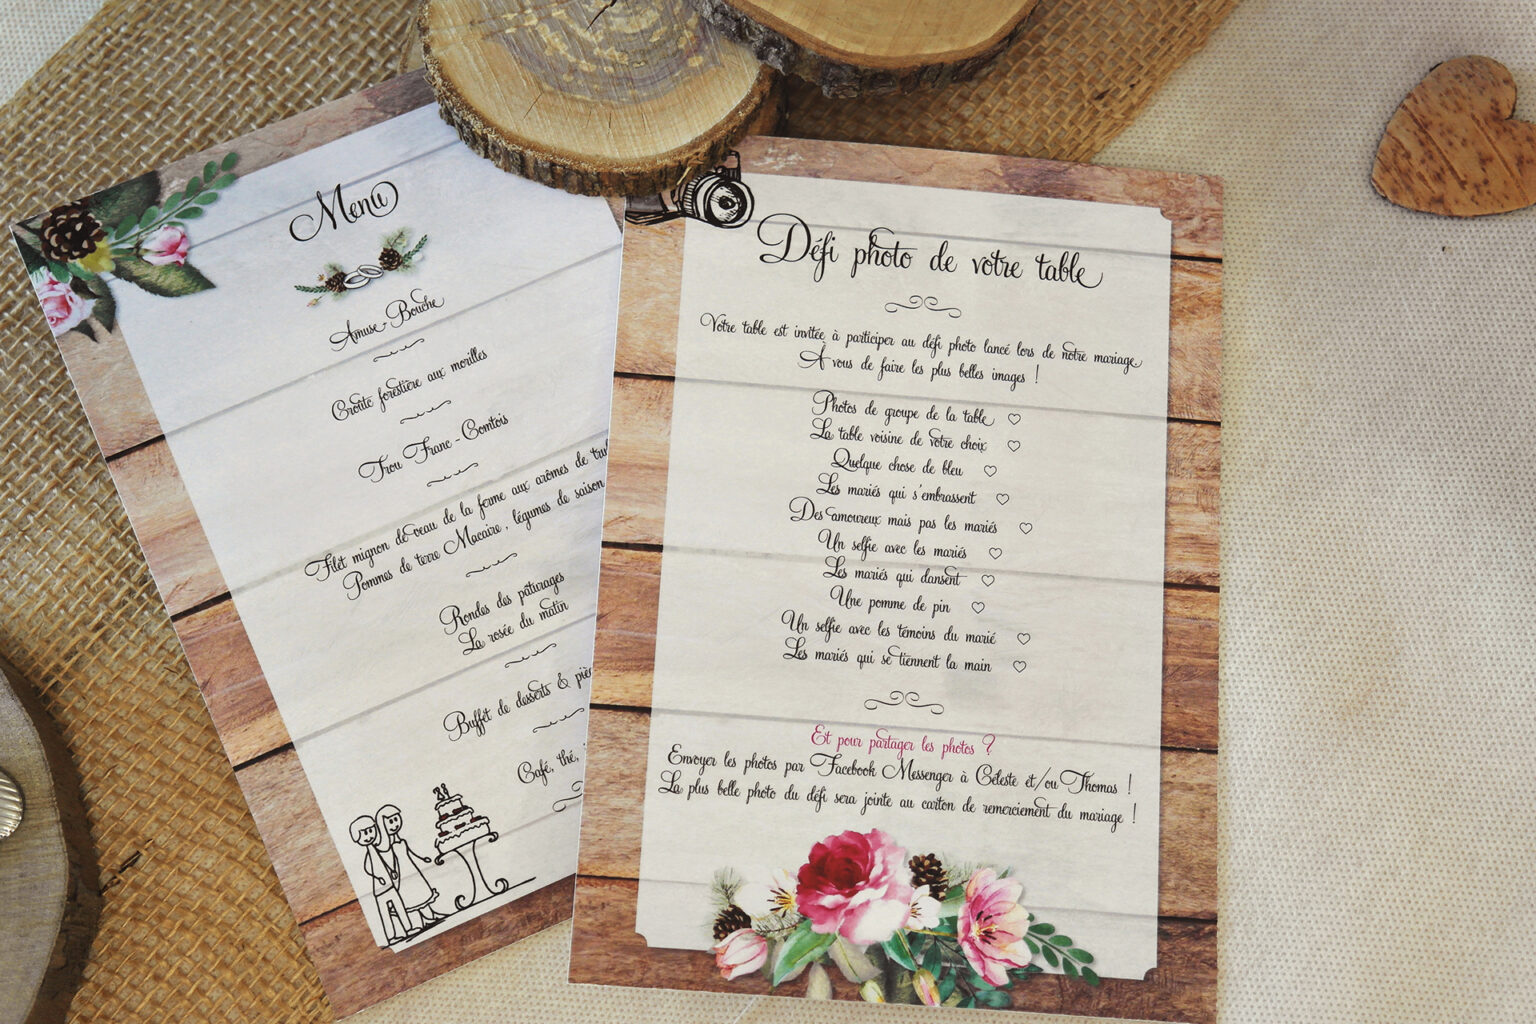 Menu
Amuse-Bouche
Croûte forestière aux morilles
Trou Franc-Comtois
Filet mignon de veau de la ferme aux arômes de
Pommes de terre Macaire, légumes de saison
Rondes des pâturages
La rosée du matin
Buffet de desserts &
Café, thé,
Défi photo de votre table
Votre table est invitée à participer au défi photo lancé lors de notre mariage
À vous de faire les plus belles images !
Photos de groupe de la table ♡
La table voisine de votre choix ♡
Quelque chose de bleu ♡
Les mariés qui s'embrassent ♡
Des amoureux mais pas les mariés ♡
Un selfie avec les mariés ♡
Les mariés qui dansent ♡
Une pomme de pin ♡
Un selfie avec les témoins du marié ♡
Les mariés qui se tiennent la main ♡
Et pour partager les photos ?
Envoyer les photos par Facebook Messenger à Céleste et/ou Thomas !
La plus belle photo du défi sera jointe au carton de remerciement du mariage !